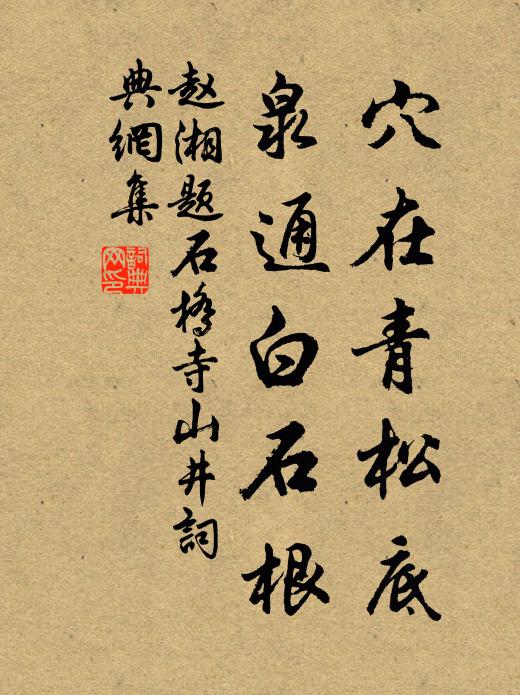 穴在青松底
泉通白石根
赵湘题石橋寺山井詞
典網集
詞典
网印